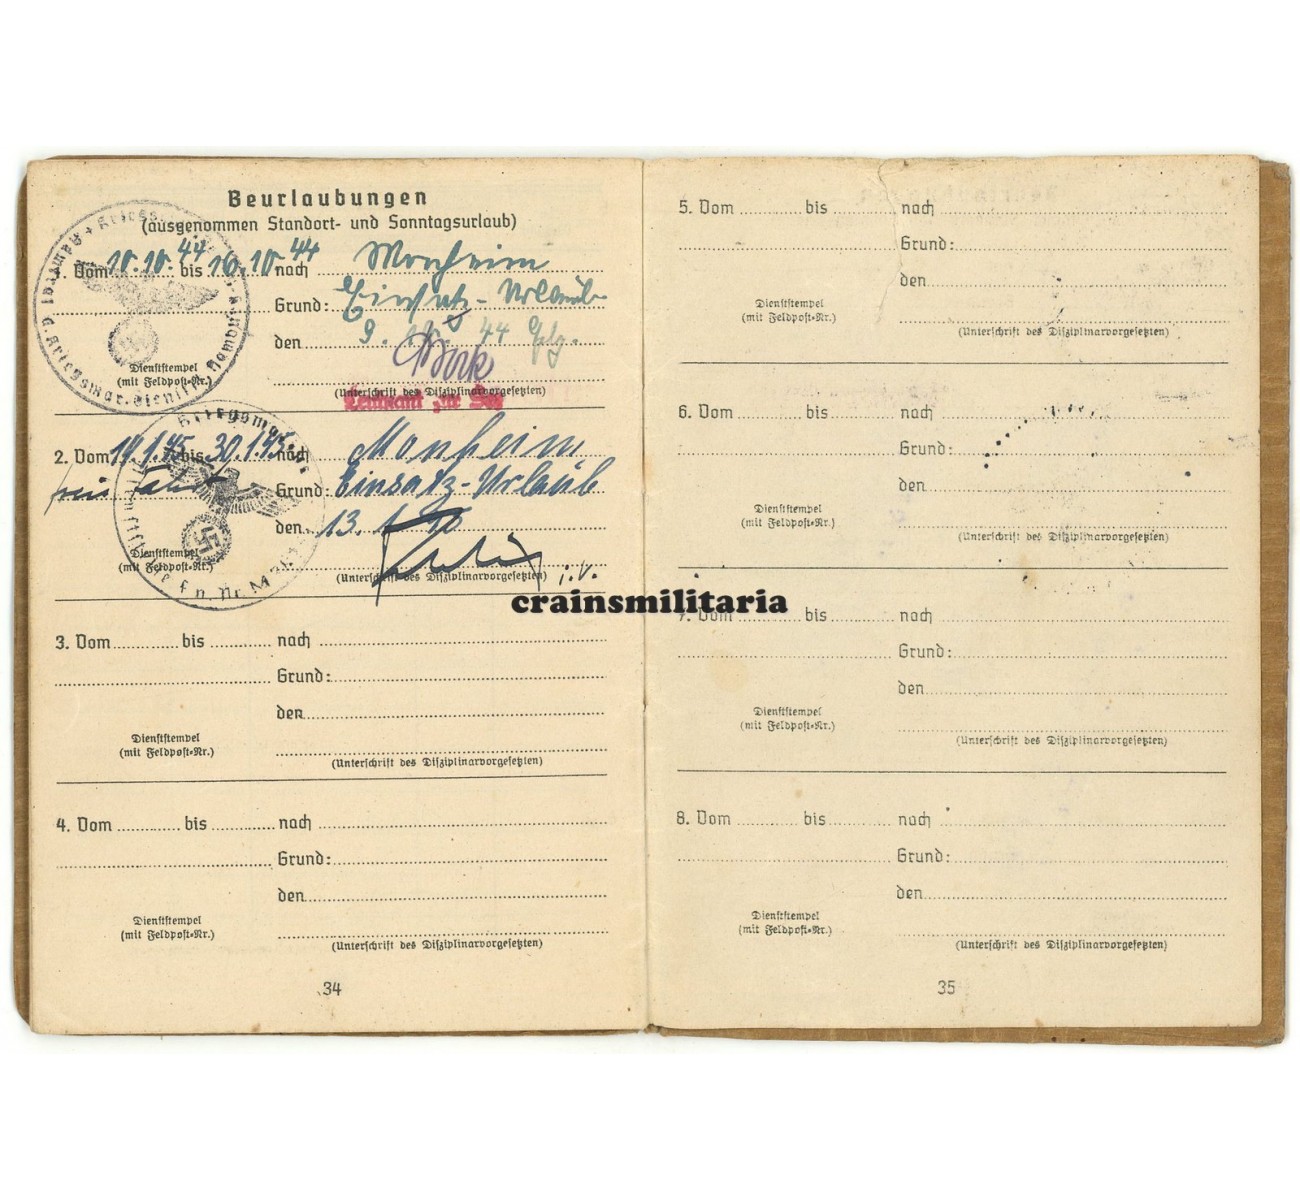 Beurlaubungen
(ausgenommen Standort- und Sonntagsurlaub)
1. Vom 10.10.44 bis 16.10.44 nach Monheim
Grund: Einsatz-Urlaub
den 9. 10. 44
Dienststempel
(mit Feldpost-Nr.)
(Unterschrift des Disziplinarvorgesetzten)
Leutnant zur See
2. Vom 14.1.45 bis 30.1.45 nach Monheim
frei Fahrt Grund: Einsatz-Urlaub
den 13. 1. 45
Dienststempel
(mit Feldpost-Nr.)
(Unterschrift des Disziplinarvorgesetzten) i.V.
crainsmilitaria
3. Vom bis nach
Grund:
den
Dienststempel
(mit Feldpost-Nr.)
(Unterschrift des Disziplinarvorgesetzten)
4. Vom bis nach
Grund:
den
Dienststempel
(mit Feldpost-Nr.)
(Unterschrift des Disziplinarvorgesetzten)
34
5. Vom bis nach
Grund:
den
Dienststempel
(mit Feldpost-Nr.)
(Unterschrift des Disziplinarvorgesetzten)
6. Vom bis nach
Grund:
den
Dienststempel
(mit Feldpost-Nr.)
(Unterschrift des Disziplinarvorgesetzten)
7. Vom bis nach
Grund:
den
Dienststempel
(mit Feldpost-Nr.)
(Unterschrift des Disziplinarvorgesetzten)
8. Vom bis nach
Grund:
den
Dienststempel
(mit Feldpost-Nr.)
(Unterschrift des Disziplinarvorgesetzten)
35